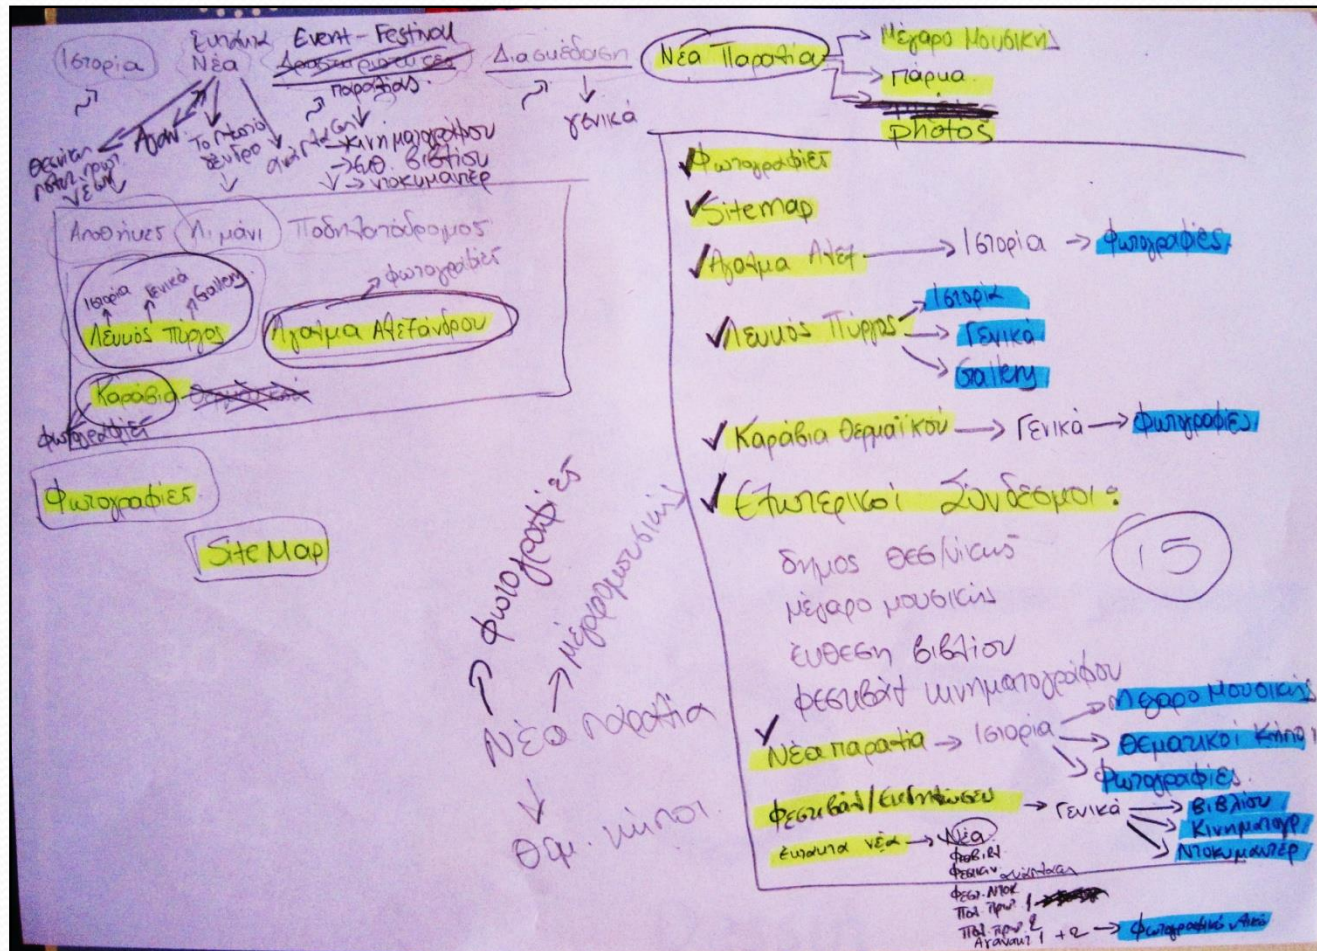 Ιστορία
Έκτακτα
Νέα
Event - Festival
Δραστηριότητες
παραλίας.
Διασκέδαση
γενικά
Νέα Παραλία
Μέγαρο Μουσικής
πάρκα
photos
Το
δέντρο
κινηματογράφου
εκθ. βιβλίου
ντοκυμαντέρ
Αποθήκες
Λιμάνι
Ποδηλατόδρομος
Ιστορία
Γενικά
Gallery
Λευκός Πύργος
φωτογραφίες
Άγαλμα Αλεξάνδρου
Καράβια
φωτογραφίες
Φωτογραφίες
SiteMap
φωτογραφίες
μέγαρο μουσικής
Νέα παραλία
Θεμ. κήποι.
Φωτογραφίες
SiteMap
Άγαλμα Αλεξ
Ιστορία
Φωτογραφίες
Λευκός Πύργος
Ιστορία
Γενικά
Gallery
Καράβια Θερμαϊκού
Γενικά
Φωτογραφίες
Εξωτερικοί Σύνδεσμοι:
δημος Θεσ/νίκης
μέγαρο μουσικής
έκθεση βιβλίου
φεστιβάλ κινηματογράφου
15
Νέα παραλία
Ιστορία
Μέγαρο Μουσικής
Θεματικοί Κήποι
Φωτογραφίες
Φεστιβάλ/Εκδηλώσεις
Γενικά
Βιβλίου
Κινηματογρ.
Ντοκυμαντέρ
έκτακτα νέα
Νέα
Φεσ. Ντοκ
Πολ. Πρωτ. 1
Πολ. Πρωτ. 2
1 + 2
φωτογραφικό υλικό